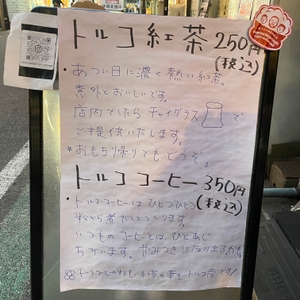 トルコ紅茶 250円
(税込)
・あつい日に濃く熱い紅茶。
意外とおいしいです。
店内でしたらチャイグラスで
ご提供いたします。
*おもち帰りでもどうぞ。
トルココーヒー 350円
(税込)
・トルココーヒーはひとつひとつ
粉から煮だしてつくります。
いつものコーヒーとは、ひとあじ
ちがいます。やみつきになりますかも